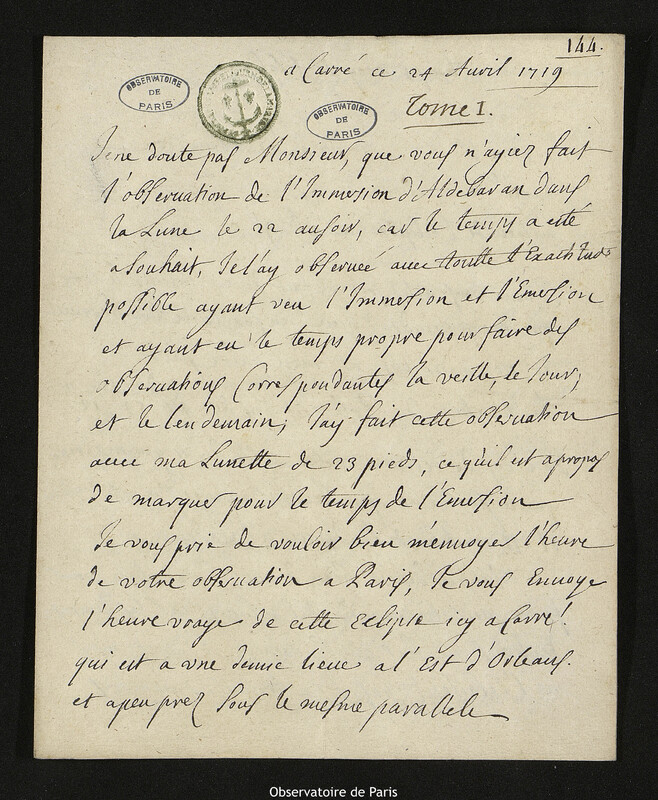 144.
a Carré ce 24 Avril 1719
OBSERVATOIRE
DE
PARIS
OBSERVATOIRE
DE
PARIS
Tome I.
Je ne doute pas Monsieur, que vous n'ayiez fait
l'observation de l'Immersion d'Aldebaran dans
la Lune le 22 au soir, car le temps a esté
a souhait, Je l'ay observeé avec toutte l'Exactitude
possible ayant veu l'Immersion et l'Emersion
et ayant eu le temps propre pour faire des
observations Correspondantes la veille, le Jour,
et le lendemain; J'ay fait cette observation
avec ma Lunette de 23 pieds, ce qu'il est apropos
de marquer pour le temps de l'Emersion
Je vous prie de vouloir bien m'envoyer l'heure
de votre observation a Paris, Je vous Envoye
l'heure vraye de cette Eclipse icy a Carré.
qui est a vne demie lieue a l'Est d'Orleans.
et apeu prez sous le mesme parallele
Observatoire de Paris